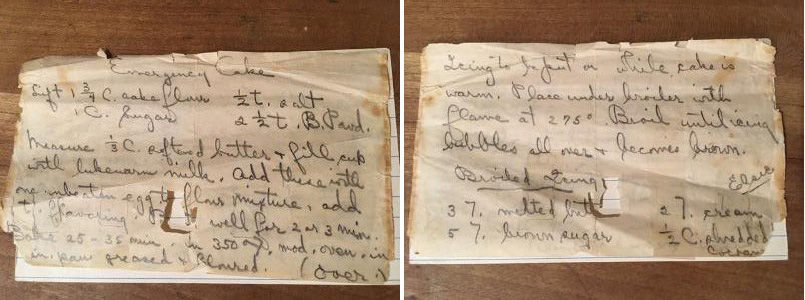 Emergency Cake
Sift 1 3/4 C. cake flour 1/2 t. salt
1 C. Sugar 2 1/2 t. B. Powd.
Measure 1/3 C. softened butter + fill cup
with lukewarm milk. Add these with
one unbeaten egg to flour mixture, add
t. flavoring well for 2 or 3 min.
Bake 25-35 min. in 350° mod. oven in
in. pan greased & floured. (over)
Icing to be put on while cake is
warm. Place under broiler with
flame at 275°. Broil until icing
bubbles all over + becomes brown.
Broiled Icing
3 T. melted butt 2 T. cream
5 T. brown sugar 1/2 C. shredded